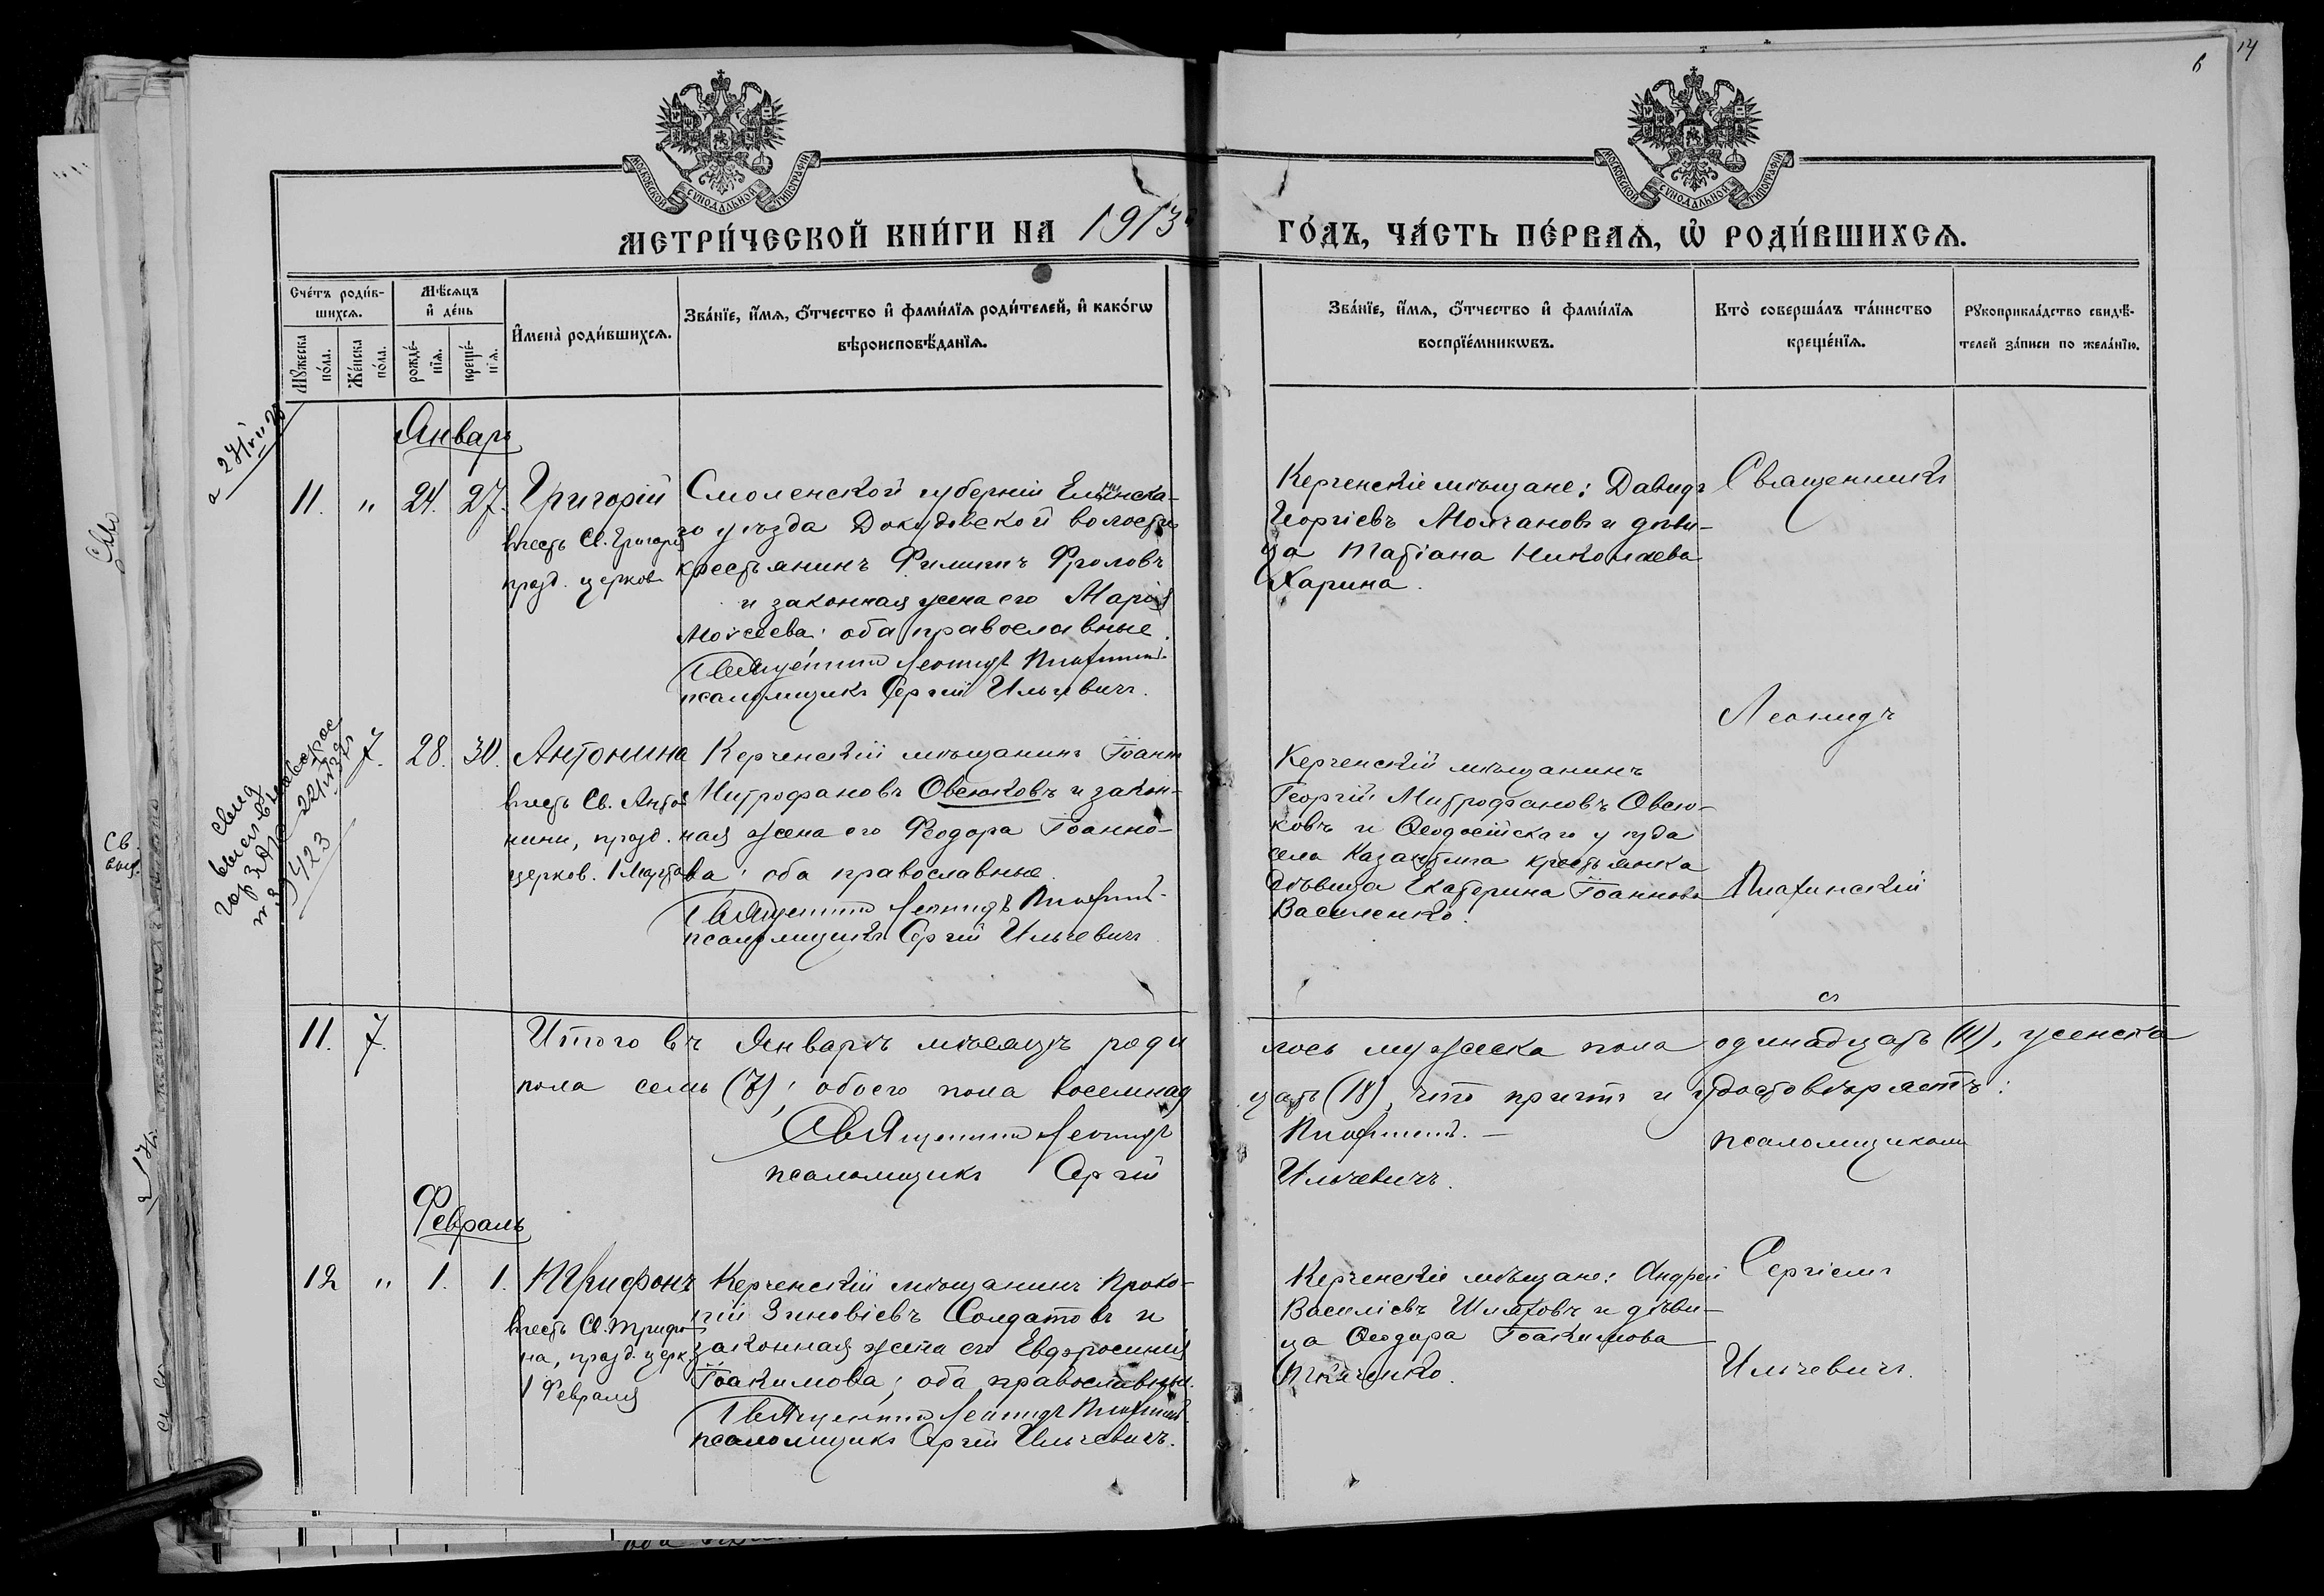 14
6
МОСКОВСКОЙ СѴНОДАЛЬНОЙ ТИПОГРАФІИ
МОСКОВСКОЙ СѴНОДАЛЬНОЙ ТИПОГРАФІИ
МЕТРИ́ЧЕСКОЙ КНИ́ГИ НА 1913
ГО́ДЪ, ЧА́СТЬ ПЕ́РВАѦ, Ѡ҆ РОДИ́ВШИХСѦ.
Сче́тъ роди́в-
шихсѧ.
Мꙋжеска по́ла.
Же́нска по́ла.
Мѣ́сѧцъ и҆ де́нь
рожде́-нїѧ.
креще́-нїѧ.
И҆мена̀ роди́вшихсѧ.
Зва́нїе, и҆́мѧ, ѻ҆́тчество и҆ фами́лїѧ роди́телей, и҆ како́гѡ
вѣроисповѣ́данїѧ.
Зва́нїе, и҆́мѧ, ѻ҆́тчество и҆ фами́лїѧ
воспрїе́мникѡвъ.
Кто̀ соверша́лъ та́инство
креще́нїѧ.
Рꙋкоприкла́дство свидѣ́-
телей за́писи по жела́нїю.
Январь
11. " 24. 27. Григорій
въ честь Св. Григорія
празд. церков
Смоленской губерніи Ельнинска-
го уѣзда Докудовской волости
крестьянинъ Филиппъ Фроловъ
и законная жена его Марія
Моисеева; оба православные.
Священникъ Леонидъ
псаломщикъ Сергій Ильчевичъ.
Керченскіе мѣщане: Давидъ
Георгіевъ Молчановъ и дѣви-
ца Татіана Николаева
Харина.
Священникъ
Леонидъ
7. 28. 30. Антонина
въ честь Св. Анто-
нины, празд.
церков. 1 Марта
Керченскій мѣщанинъ Іоаннъ
Митрофановъ Овсюковъ и закон-
ная жена его Феодора Іоанно-
ва; оба православные.
Священникъ Леонидъ
псаломщикъ Сергій Ильчевичъ
Керченскій мѣщанинъ
Георгій Митрофановъ Овсю-
ковъ и Ѳеодосійскаго уѣзда
села Казантипа крестьянка
дѣвица Екатерина Іоаннова
Василенко.
423
съ
11. 7. Итого въ Январѣ мѣсяцѣ роди
лось мужеска пола одинадцать (11), женска
пола семь (7); обоего пола восемнад
цать (18), что причтъ и удостовѣряетъ:
Священникъ Леонидъ
псаломщикъ Сергій
Ильчевичъ.
псаломщикомъ
Февраль
12 " 1. 1. Трифонъ
въ честь Св. Трифо-
на, празд. церк.
1 Февраля
Керченскій мѣщанинъ Проко-
пій Зиновіевъ Солдатовъ и
законная жена его Евфросинія
Іоакимова; оба православные.
Священникъ Леонидъ
псаломщикъ Сергій Ильчевичъ.
Керченскіе мѣщане: Андрей
Василіевъ Шляховъ и дѣви-
ца Ѳеодора Іоакимова
Ткаченко.
Сергіемъ
Ильчевичъ.